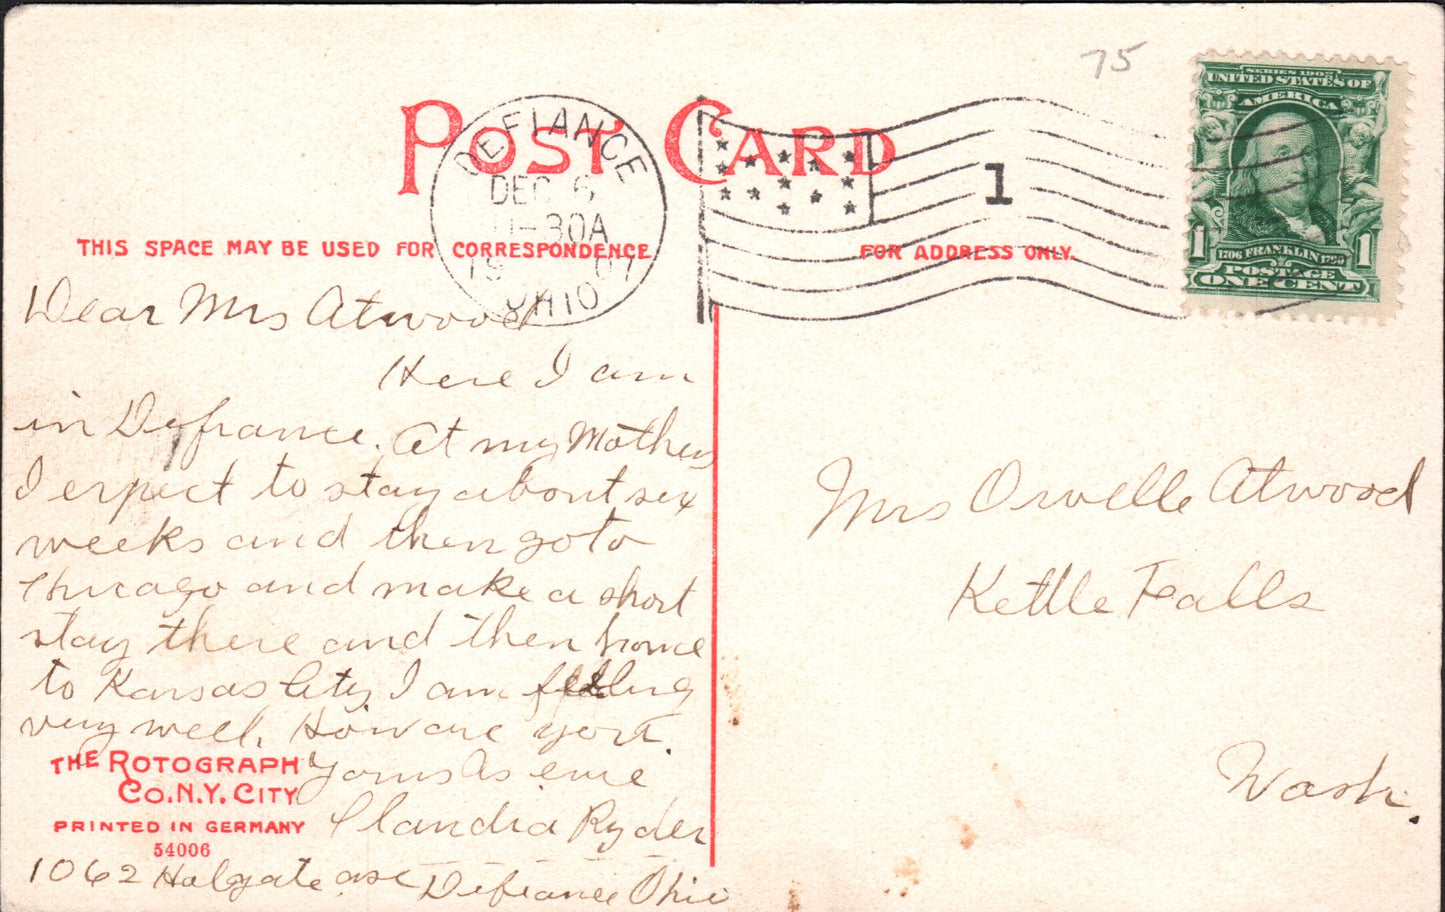 75
POST CARD
DEFIANCE
DEC 6
11-30A
1907
OHIO
1
SERIES 1902
UNITED STATES OF
AMERICA
1706 FRANKLIN 1790
POSTAGE
1 ONE CENT 1
THIS SPACE MAY BE USED FOR CORRESPONDENCE
FOR ADDRESS ONLY.
Dear Mrs Atwood
Here I am
in Defiance. At my Mothers
I expect to stay about six
weeks and then go to
Chicago and make a short
stay there and then home
to Kansas City I am feeling
very well. How are you.
Yours As ever
Claudia Ryder
1062 Holgate ave Defiance Ohio
Mrs Orville Atwood
Kettle Falls
Wash.
THE ROTOGRAPH
CO. N.Y. CITY
PRINTED IN GERMANY
54006